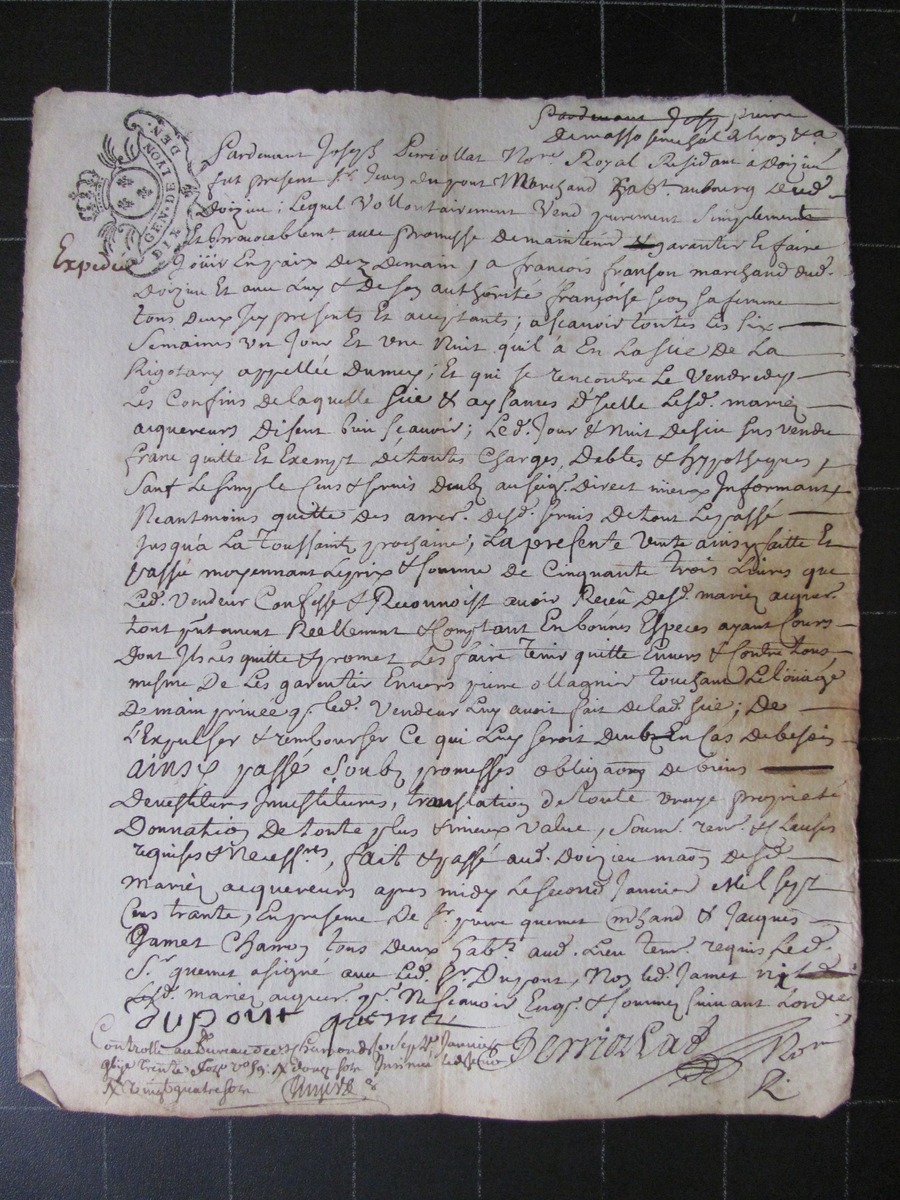 Pardevant Jos pierre
Demasso senechal a lyon &a
GEN. DE LYON
DIX DEN.
Pardevant Joseph Perriollat Nore Royal Residant a Doizieu
fut present Sr Jean Dupont Marchand habt au bourg de
Doizieu; Lequel Vollontairement Vend purement Simplement
Et irrevocablemt avec promesse de mainteur & garantir Et faire
Expedié
Joüir En paix dez Demain, a françois franson marchand dud.
Doizieu Et avec Luy & de son authôrité françoise sa femme
tous deux Icy presents Et acceptants; ascavoir toutes les six
Semaines un Jour Et une Nuit qu'il â En La Sie De La
Rigotary appellée Dumey; Et qui se rencontre Le Vendredy
Les Confins de laquelle Sie & aysances D'Icelle Lesd. mariez
acquereurs Disent bien scavoir; Led. Jour & Nuit de sie sus vendu
franc quitte Et Exempt de toutes Charges, Debtes & hypotheques,
Sauf Le simple Cens & servis deub au seigr. Direct mieux Informant
Neantmoins quitte des arrer. desd. servis de tout Le passé
Jusqu'a La Toussaint prochaine; La presente vente ainsy faitte Et
passée moyennant Le prix & somme de Cinquante trois Livres que
Led. Vendeur Confesse & Reconnoist avoir Receu desd. mariez acquer.
tout pntement Reellement & Comptant En bonnes Especes ayant Cours
Dont Il les quitte & promet Les faire tenir quitte Envers & Contre tous,
mesme De Les garentir Envers pierre ollagnier touchant Le loüage
De main privée que led. Vendeur Luy avoit fait de lad. Sie; De
L'Expulser & rembourser Ce qui Luy seroit deub En Cas de besoin
ainsy passé Soubz promesses obligaôns de biens
Devestitures Investitures, translation de toute vraye proprieté
Donnation De toute plus & mieux value, soum. ren. & Clauses
requises & Necessres, fait & passé aud. Doizieu maôn desd.
Mariez acquereurs apres midy Le second Janvier Mil sept
Cens trante, En presence De Sr pierre quemet mchand & Jacques
Jamet Charron tous deux habts aud. Lieu tem. requis Led.
Sr quemet a signé avec Led. Sr Dupont, Non led. Jamet ni
Lesd. mariez acquer. pr Ne scavoir Enqs. & sommez suivant L'ordce
dupont quemet
Perriollat Nore R.
Controllé au Bureau de St Chamond Le sept Janvier
trente Rx douze sols Insinué
Rx vingt quatre sols